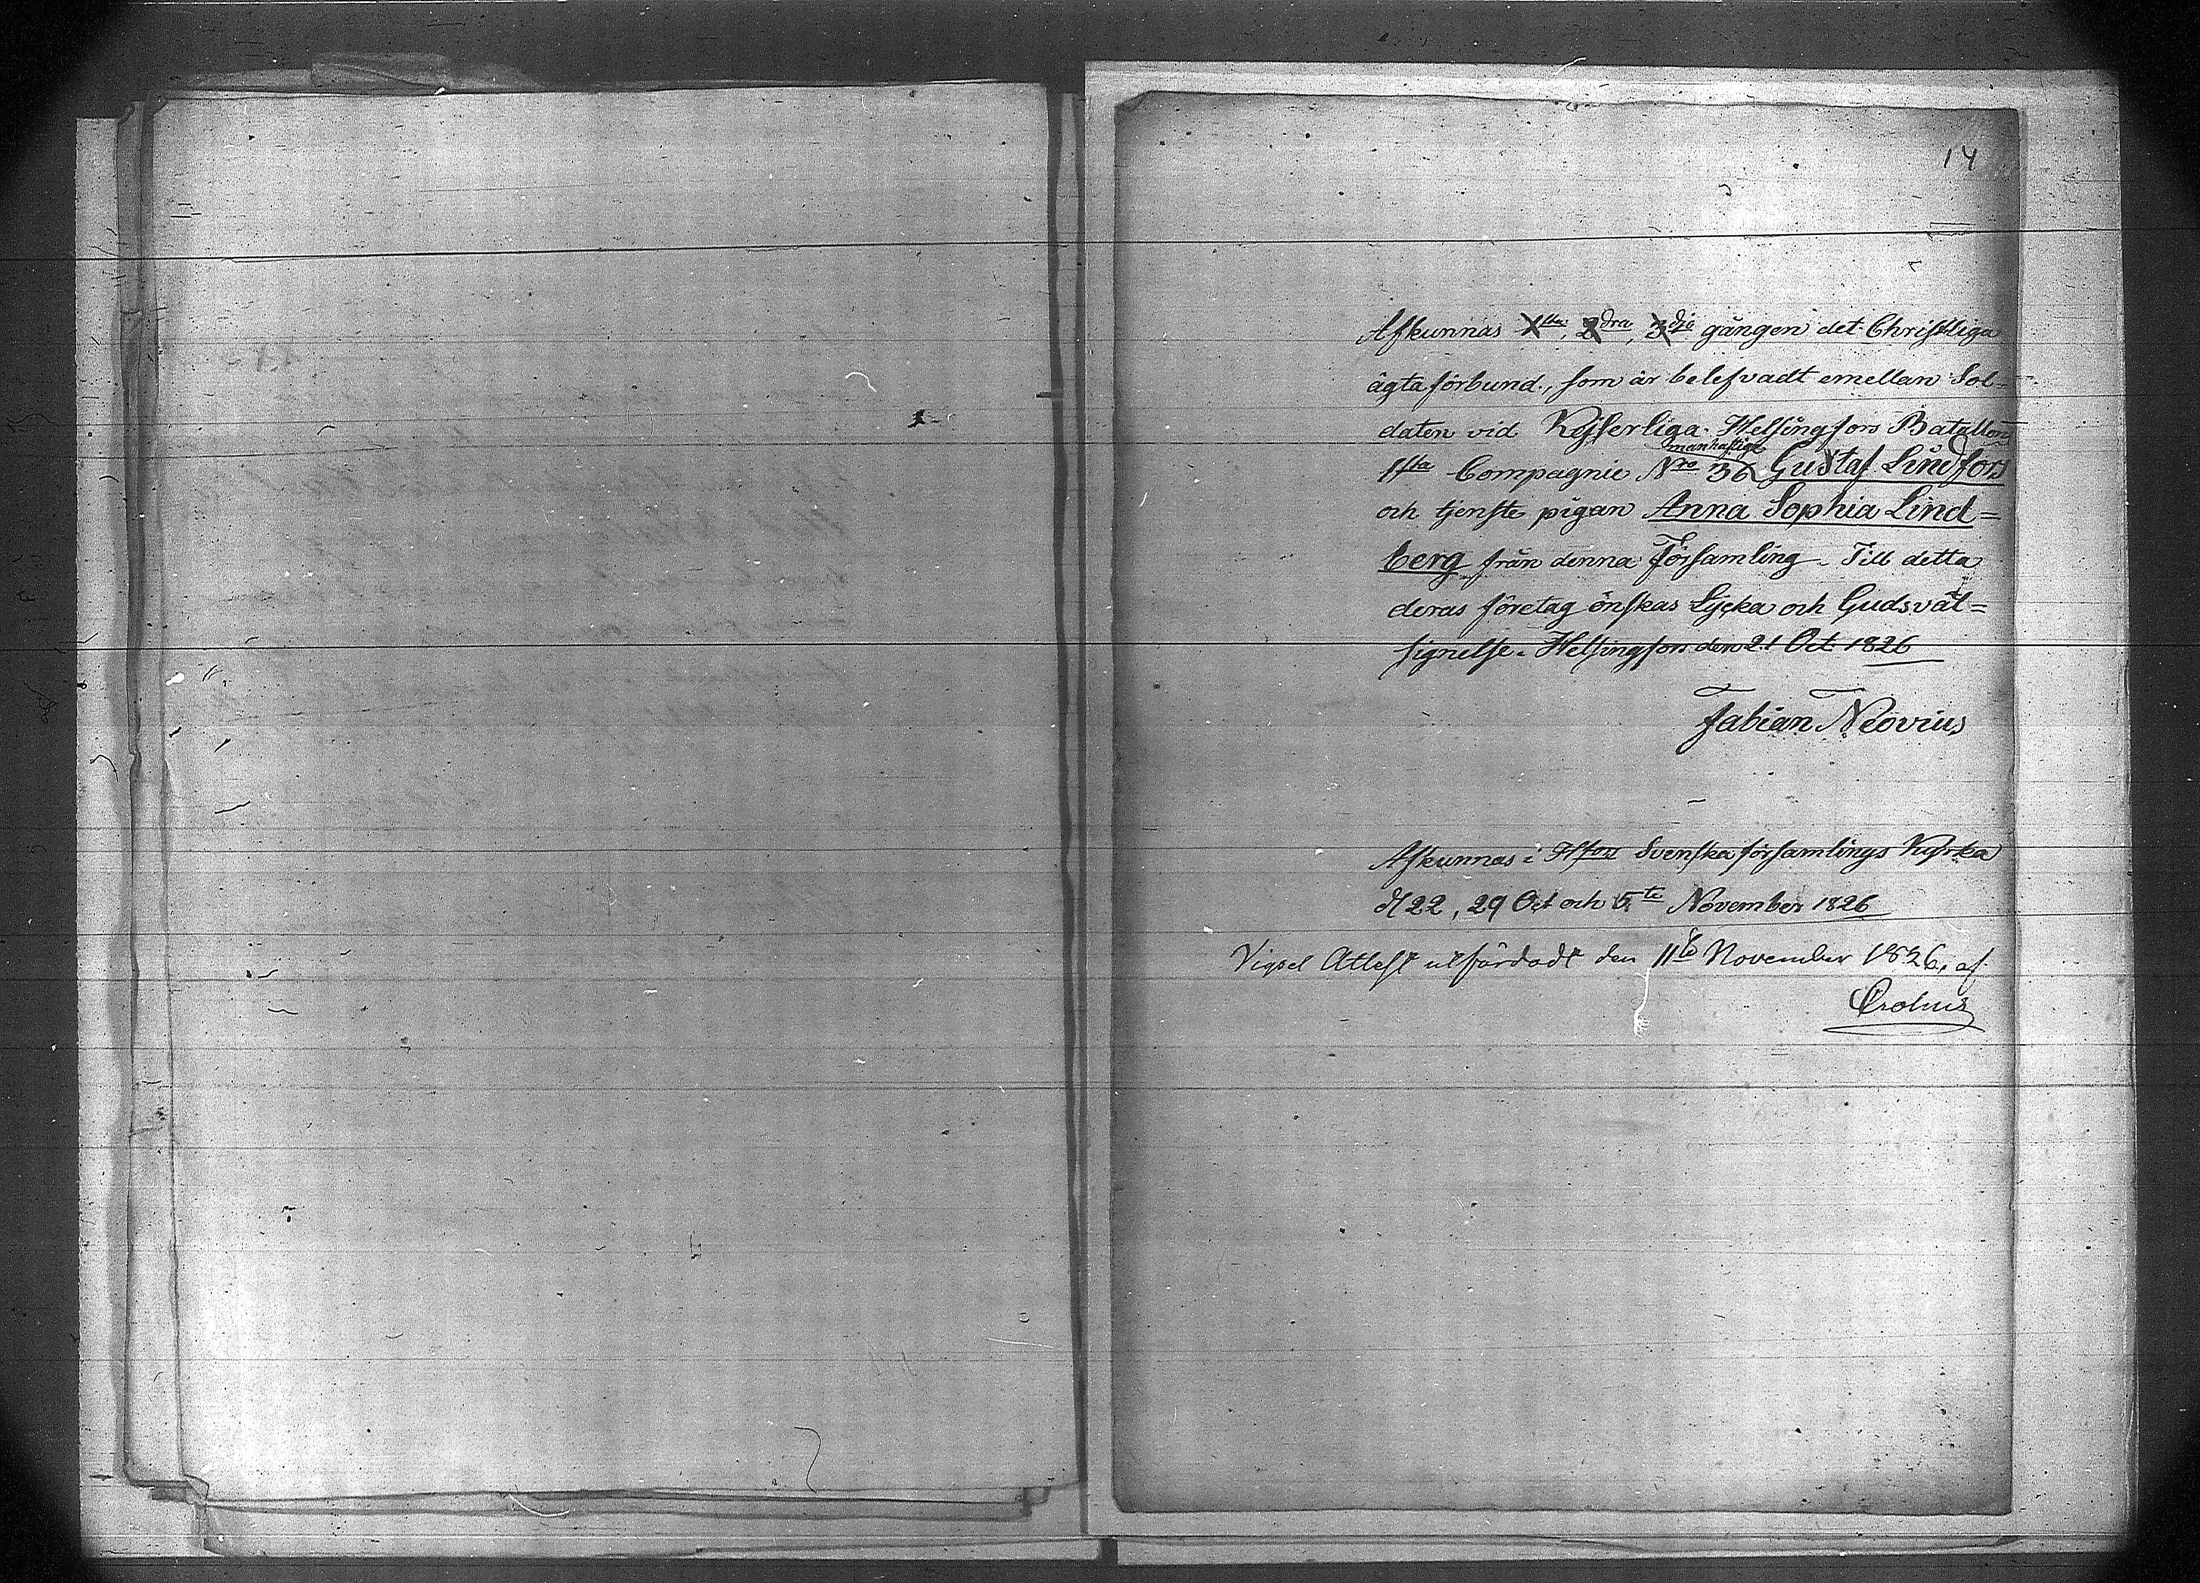 14
Afkunnas 1sta, 2dra, 3dje gången det Christliga
ägta förbund, som är belefvadt emellan Sol=
daten vid Kejserliga Helsingfors Bataillon
manhaftige
1sta Compagnie Nro 36 Gustaf Lindfors
och tjenste pigan Anna Sophia Lind=
berg från denna Församling. Till detta
deras företag önskas Lycka och Gudsväl=
signelse. Helsingfors den 21 Oct. 1826
Fabian Neovius
Afkunnas i Hfors Svenska församlings Kyrka
d 22, 29 Oct och 5te November 1826
Vigsel Attest utfärdadt den 11te November 1826, af